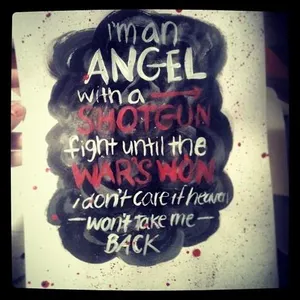 i'm an
ANGEL
with a
SHOTGUN
fight until the
WAR'S WON
i don't care if heaven
won't take me
BACK